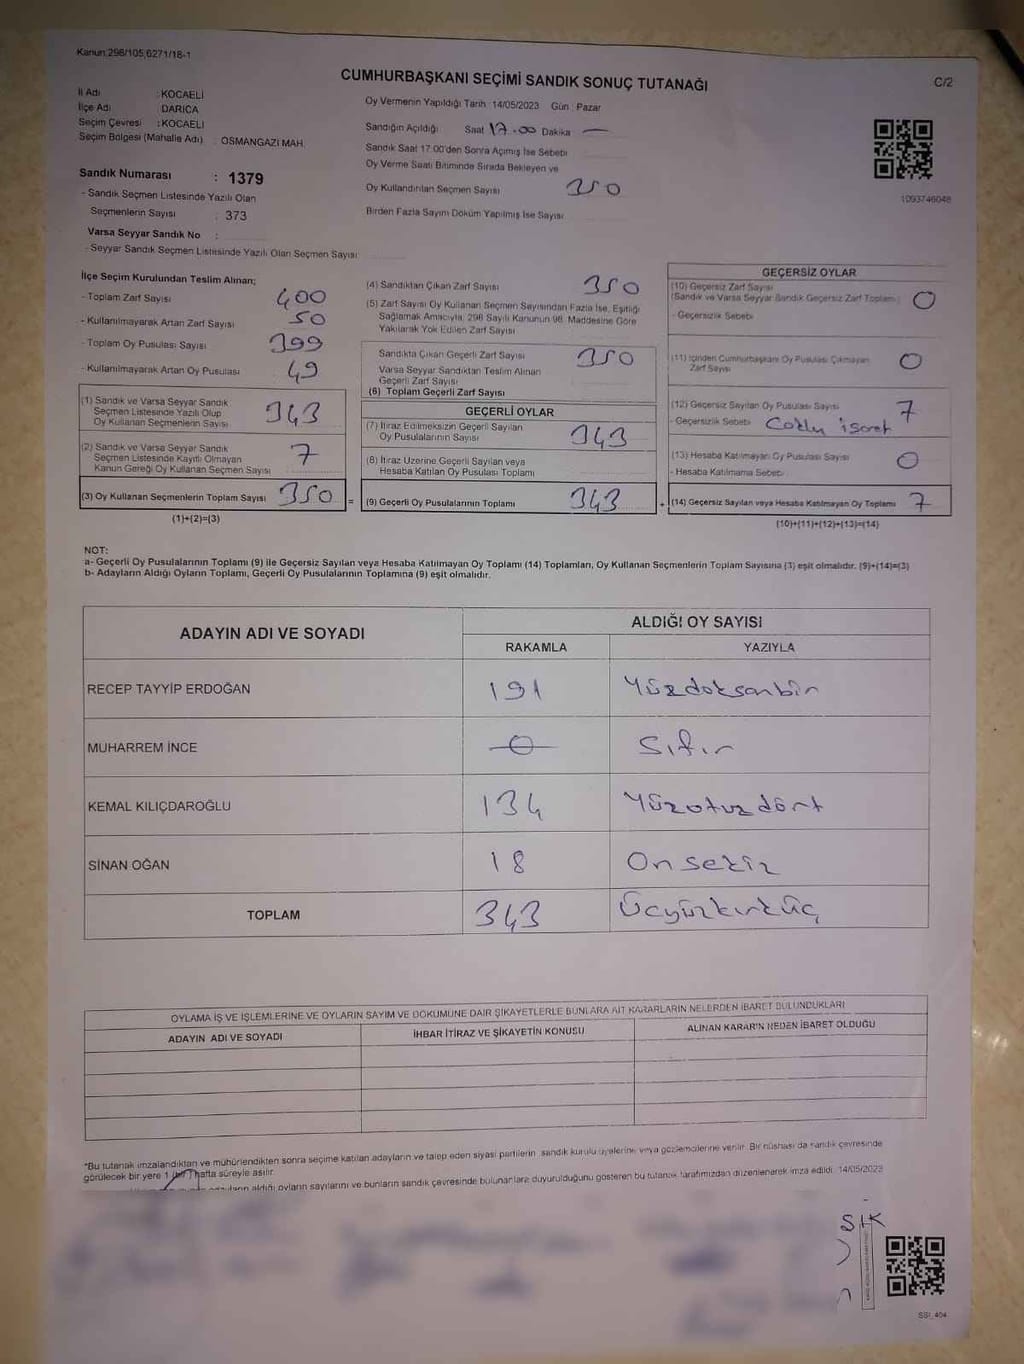 Kanun:298/105,6271/18-1
CUMHURBAŞKANI SEÇİMİ SANDIK SONUÇ TUTANAĞI
C/2
İl Adı : KOCAELİ
İlçe Adı : DARICA
Seçim Çevresi : KOCAELİ
Seçim Bölgesi (Mahalle Adı) : OSMANGAZİ MAH.
Sandık Numarası : 1379
- Sandık Seçmen Listesinde Yazılı Olan
Seçmenlerin Sayısı : 373
Varsa Seyyar Sandık No :
- Seyyar Sandık Seçmen Listesinde Yazılı Olan Seçmen Sayısı
Oy Vermenin Yapıldığı Tarih : 14/05/2023 Gün : Pazar
Sandığın Açıldığı Saat 17.00 Dakika —
Sandık Saat 17:00'den Sonra Açımış İse Sebebi
Oy Verme Saati Bitiminde Sırada Bekleyen ve
Oy Kullandırılan Seçmen Sayısı 350
Birden Fazla Sayım Döküm Yapılmış İse Sayısı
1093746048
İlçe Seçim Kurulundan Teslim Alınan;
- Toplam Zarf Sayısı 400
- Kullanılmayarak Artan Zarf Sayısı 50
- Toplam Oy Pusulası Sayısı 399
- Kullanılmayarak Artan Oy Pusulası 49
(1) Sandık ve Varsa Seyyar Sandık
Seçmen Listesinde Yazılı Olup
Oy Kullanan Seçmenlerin Sayısı 343
(2) Sandık ve Varsa Seyyar Sandık
Seçmen Listesinde Kayıtlı Olmayan
Kanun Gereği Oy Kullanan Seçmen Sayısı 7
(3) Oy Kullanan Seçmenlerin Toplam Sayısı 350 =
(1)+(2)=(3)
(4) Sandıktan Çıkan Zarf Sayısı 350
(5) Zarf Sayısı Oy Kullanan Seçmen Sayısından Fazla İse, Eşitliği
Sağlamak Amacıyla, 298 Sayılı Kanunun 98. Maddesine Göre
Yakılarak Yok Edilen Zarf Sayısı
Sandıkta Çıkan Geçerli Zarf Sayısı 350
Varsa Seyyar Sandıktan Teslim Alınan
Geçerli Zarf Sayısı
(6) Toplam Geçerli Zarf Sayısı
GEÇERLİ OYLAR
(7) İtiraz Edilmeksizin Geçerli Sayılan
Oy Pusulalarının Sayısı 343
(8) İtiraz Üzerine Geçerli Sayılan veya
Hesaba Katılan Oy Pusulası Toplamı
(9) Geçerli Oy Pusulalarının Toplamı 343 +
GEÇERSİZ OYLAR
(10) Geçersiz Zarf Sayısı
(Sandık ve Varsa Seyyar Sandık Geçersiz Zarf Toplamı) 0
- Geçersizlik Sebebi
(11) İçinden Cumhurbaşkanı Oy Pusulası Çıkmayan
Zarf Sayısı 0
(12) Geçersiz Sayılan Oy Pusulası Sayısı 7
- Geçersizlik Sebebi Çoklu işaret
(13) Hesaba Katılmayan Oy Pusulası Sayısı 0
- Hesaba Katılmama Sebebi
(14) Geçersiz Sayılan veya Hesaba Katılmayan Oy Toplamı 7
(10)+(11)+(12)+(13)=(14)
NOT:
a- Geçerli Oy Pusulalarının Toplamı (9) ile Geçersiz Sayılan veya Hesaba Katılmayan Oy Toplamı (14) Toplamları, Oy Kullanan Seçmenlerin Toplam Sayısına (3) eşit olmalıdır. (9)+(14)=(3)
b- Adayların Aldığı Oyların Toplamı, Geçerli Oy Pusulalarının Toplamına (9) eşit olmalıdır.
ADAYIN ADI VE SOYADI
ALDIĞI OY SAYISI
RAKAMLA YAZIYLA
RECEP TAYYİP ERDOĞAN 191 Yüzdoksanbir
MUHARREM İNCE 0 Sıfır
KEMAL KILIÇDAROĞLU 134 Yüzotuzdört
SİNAN OĞAN 18 Onsekiz
TOPLAM 343 Üçyüzkırküç
OYLAMA İŞ VE İŞLEMLERİNE VE OYLARIN SAYIM VE DÖKÜMÜNE DAİR ŞİKAYETLERLE BUNLARA AİT KARARLARIN NELERDEN İBARET BULUNDUKLARI
ADAYIN ADI VE SOYADI
İHBAR İTİRAZ VE ŞİKAYETİN KONUSU
ALINAN KARARIN NEDEN İBARET OLDUĞU
*Bu tutanak imzalandıktan ve mühürlendikten sonra seçime katılan adayların ve talep eden siyasi partilerin sandık kurulu üyelerine veya gözlemcilerine verilir. Bir nüshası da sandık çevresinde
görülecek bir yere 1 (bir) hafta süreyle asılır.
aldığı oyların sayılarını ve bunların sandık çevresinde bulunanlara duyurulduğunu gösteren bu tutanak tarafımızdan düzenlenerek imza edildi. 14/05/2023
SK
SSI_404